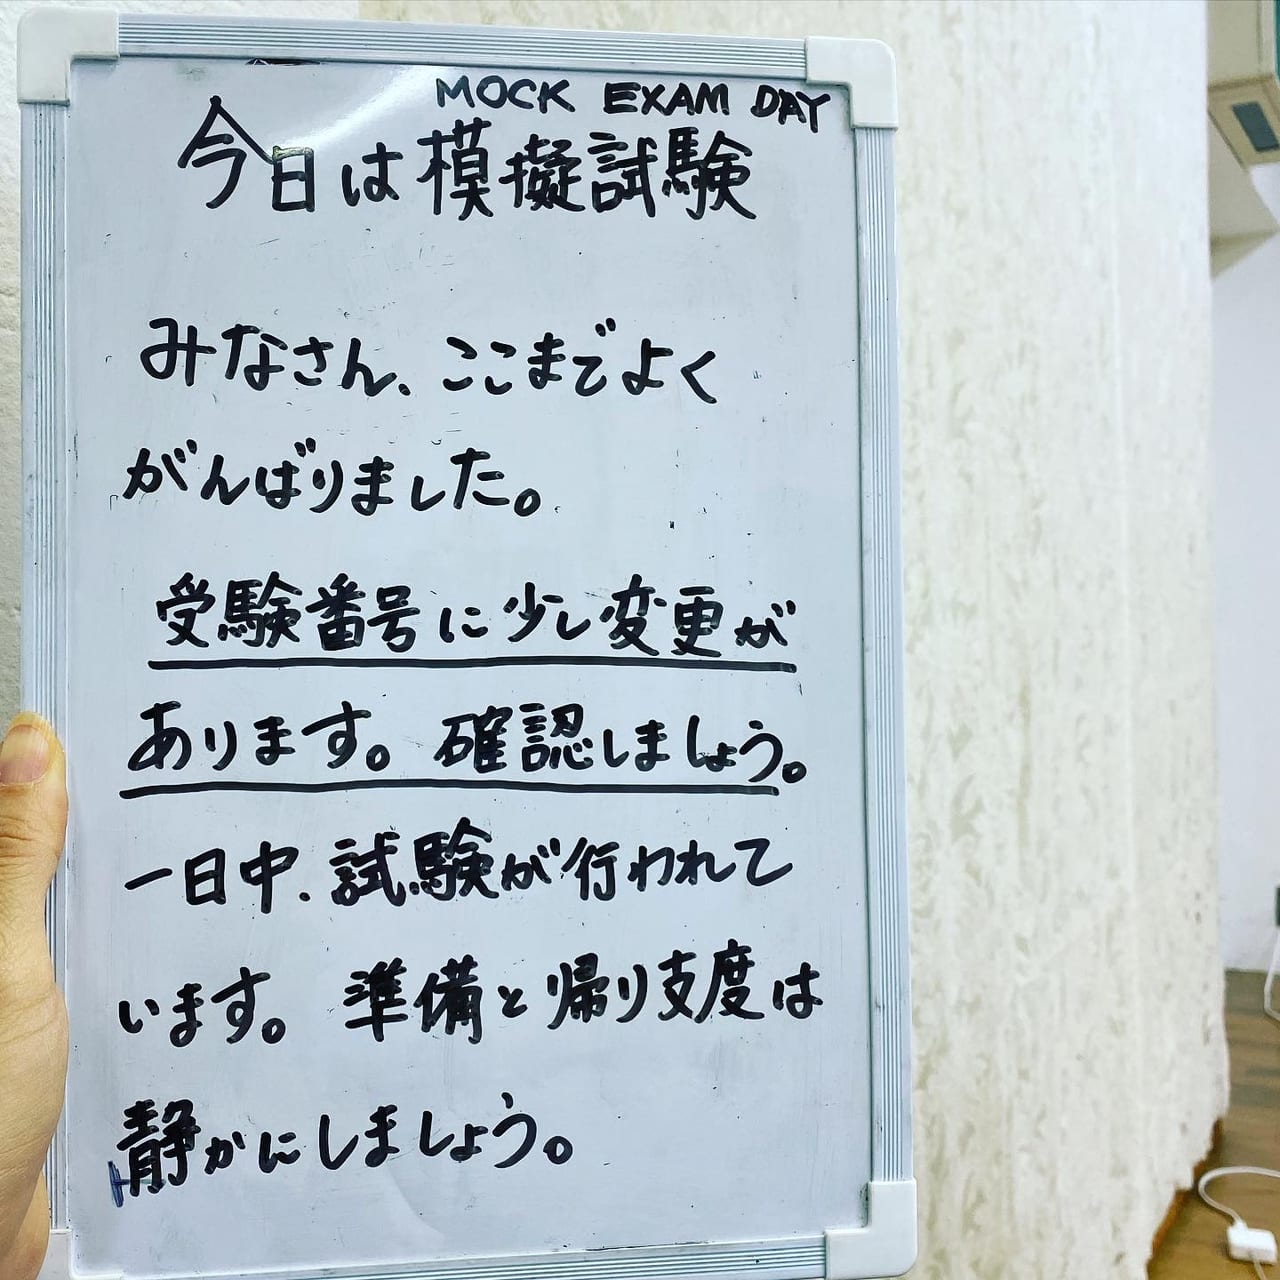 MOCK EXAM DAY
今日は模擬試験
みなさん、ここまでよく
がんばりました。
受験番号に少し変更が
あります。確認しましょう。
一日中、試験が行われて
います。準備と帰り支度は
静かにしましょう。